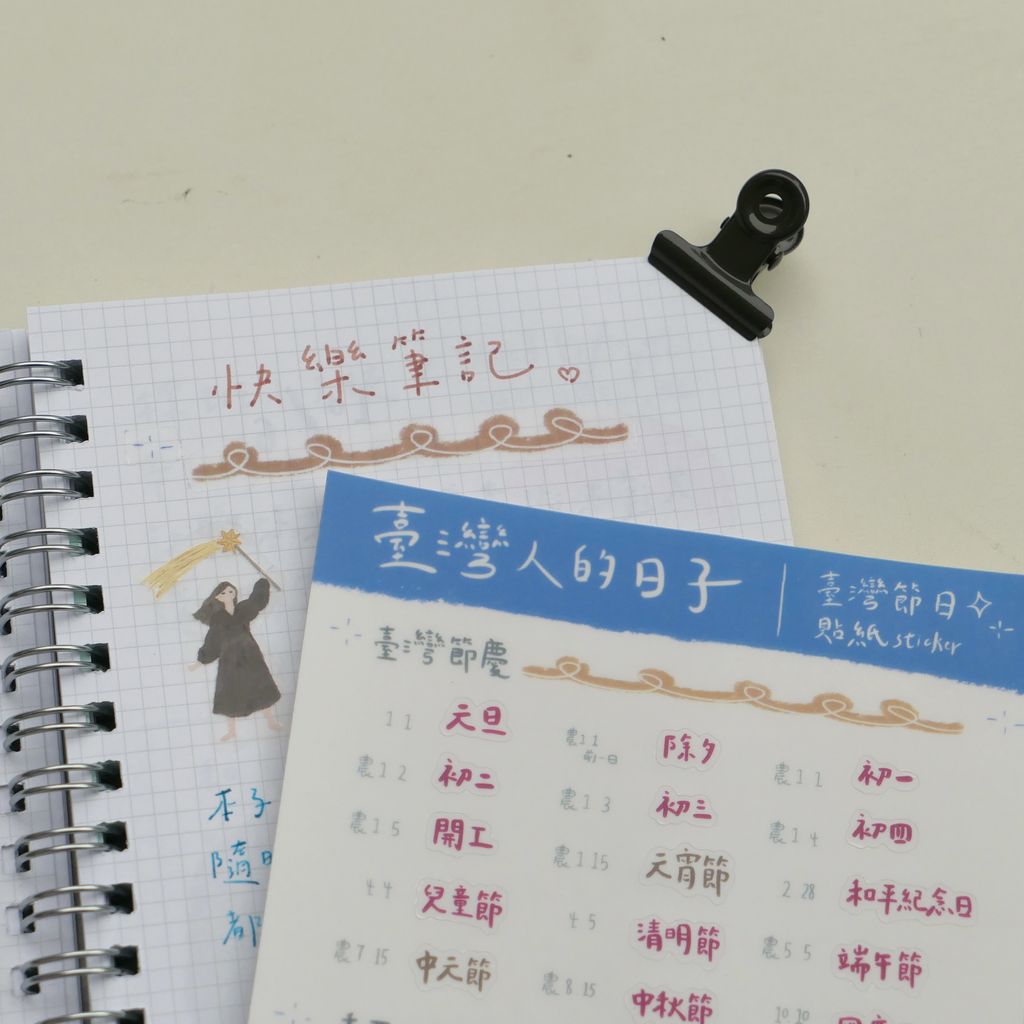 快樂筆記
本子
隨
都
臺灣人的日子
臺灣節日
貼紙 sticker
臺灣節慶
1 1 元旦
農 1 1 前一日 除夕
農 1 1 初一
農 1 2 初二
農 1 3 初三
農 1 4 初四
農 1 5 開工
農 1 15 元宵節
2 28 和平紀念日
4 4 兒童節
4 5 清明節
農 5 5 端午節
農 7 15 中元節
農 8 15 中秋節
10 10